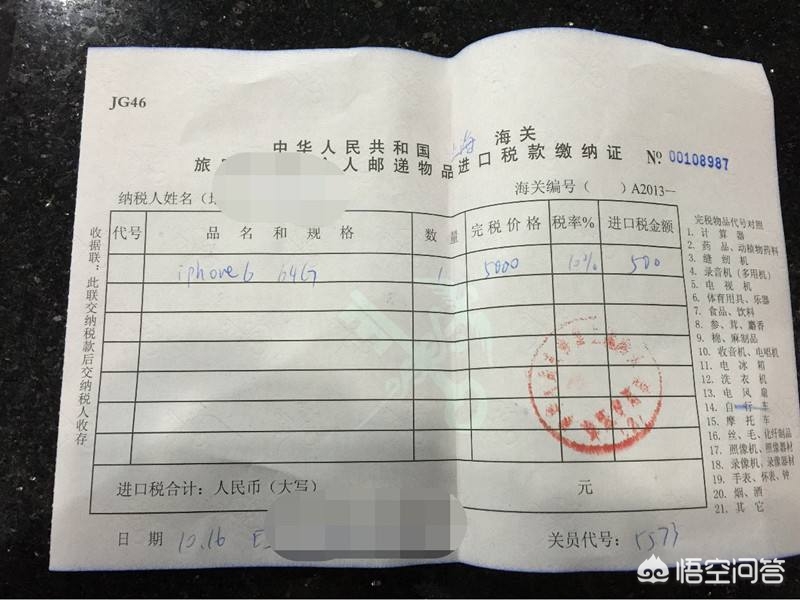 JG46
中华人民共和国 上海 海关
旅 个人邮递物品进口税款缴纳证 № 00108987
纳税人姓名（ 海关编号（ ）A2013—
代号 品名和规格 数量 完税价格 税率% 进口税金额
iphone6 64G 1 5000 10% 500
进口税合计：人民币（大写） 元
日期 10.16 关员代号：5573
收据联：此联交纳税款后交纳税人收存
完税物品代号对照
1. 计算器
2. 药品、动植物药料
3. 缝纫机
4. 录音机（多用机）
5. 电视机
6. 体育用具、乐器
7. 食品、饮料
8. 参、茸、麝香
9. 棉、麻制品
10. 收音机、电唱机
11. 电冰箱
12. 洗衣机
13. 电风扇
14. 自行车
15. 摩托车
16. 丝、毛、化纤制品
17. 照像机、照像器材
18. 录像机、录像器材
19. 手表、怀表、钟
20. 烟、酒
21. 其它
悟空问答